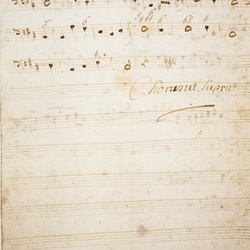 Chorus ut Supra